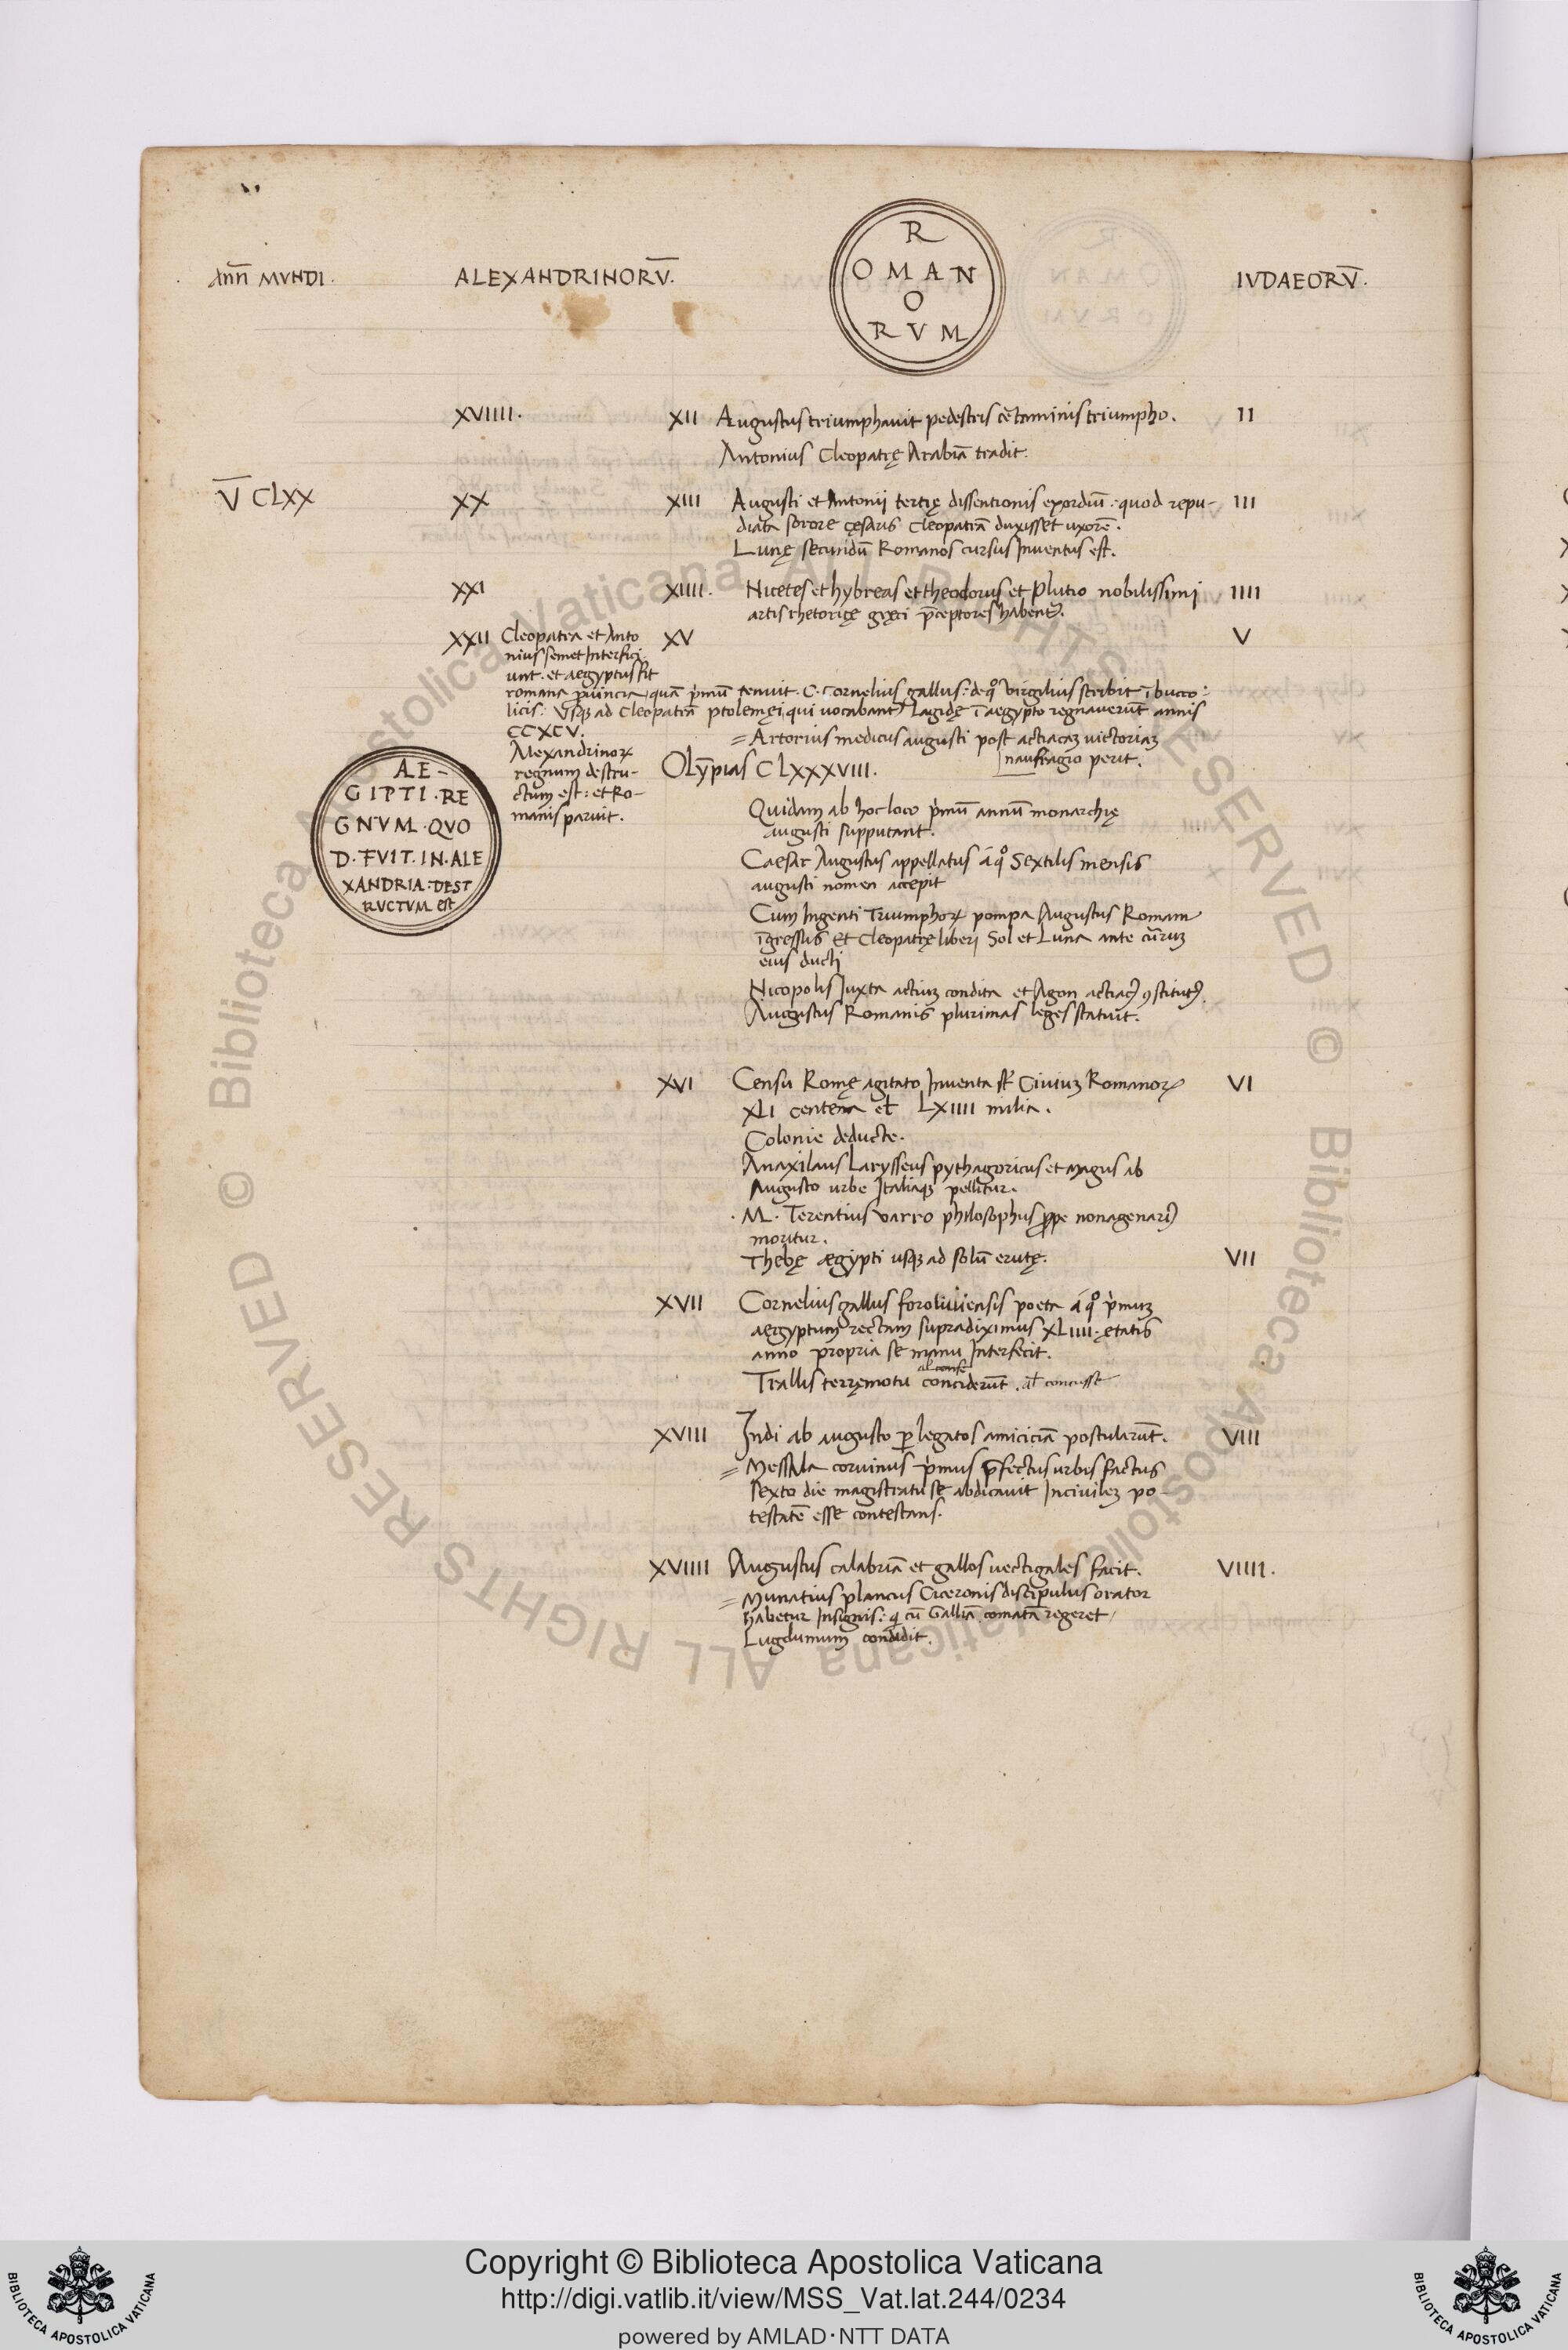 Ann̄ MVNDI.
ALEXANDRINORV̄.
R
OMAN
O
RVM
IVDAEORV̄.
XVIIII.
XII Augustus triumphauit pedestris c̄etaminis triumpho.
II
Antonius Cleopatrę Arabiā tradit.
V̄ CLXX
XX
XIII Augusti et Antonij tertię dissentionis exordiū: quod repu-
III
diata sorore cęsaris Cleopatrā duxisset uxorē.
Lunę secundū Romanos cursus Inuentus est.
XXI
XIIII. Nicetes et hybreas et theodorus et Plutio nobilissimj
IIII
artis rhetoricę gręci p̄ceptores habent᷑.
XXII Cleopatra et Anto
XV
V
nius semet Interfici
unt. et aegyptus fit
romana puincia, quā pͥmū tenuit. C. Cornelius gallus: de qͦ Virgilius scribit ī bucco:
licis: Vsqꝫ ad Cleopatrā ptolemęi, qui uocabant᷑ Lagidę ī aegypto regnauerūt annis
CCXCV.
= Artorius medicus augusti post actiacaꝫ uictoriaꝫ
naufragio perit.
Alexandrinoꝝ
regnum destru-
ctum est: et Ro-
manis paruit.
AE-
GIPTI.RE
GNVM.QVO
D.FVIT.IN.ALE
XANDRIA:DEST
RVCTVM est
Olȳpias CLXXXVIII.
Quidam ab hoc loco pͥmū annū monarchię
augusti supputant.
Caesar Augustus appellatus á qͦ Sextilis mensis
augusti nomen accepit
Cum Ingenti Triumphoꝝ pompa Augustus Romam
īgressus Et Cleopatrę liberj Sol et Luna ante curruꝫ
eius ductj
Nicopolis Iuxta actiuꝫ condita et Agon actiacꝰ ꝯstitutꝰ.
Augustus Romanis plurimas leges statuit.
XVI Censu Romę agitato Inuenta st̄ Ciuiuꝫ Romanoꝝ
VI
XLI centena et LXIIII milia.
Colonie deducte.
Anaxilaus Larysseus pythagoricus et magus ab
Augusto urbe Italiaqꝫ pellitur.
. M. Terentius uarro philosophus ꝓpe nonagenariꝰ
moritur.
Thebę ægypti usqꝫ ad solū erutę.
VII
XVII Cornelius gallus foroliuiensis poeta á qͦ pͥmuꝫ
aegyptum rectam supradiximus XLIIII. ętatis
anno propria se manu Interfecit.
al conse
Trallis terręmotu conciderūt. al̄ concusse
XVIII Indi ab augusto ꝑ legatos amiciciā postularūt.
VIII
= Messala coruinus pͥmus p̄fectus urbis factus
sexto die magistratu se abdicauit Inciuileꝫ po-
testatē esse contestans.
XVIIII Augustus calabriā et gallos uectigales facit.
VIIII.
= Munatius plancus Ciceronis discipulus orator
habetur Insignis: q cū Galliā comatā regeret,
Lugdunum condidit.
© Biblioteca Apostolica Vaticana ALL RIGHTS RESERVED © Biblioteca Apostolica Vaticana ALL RIGHTS RESERVED
Copyright © Biblioteca Apostolica Vaticana
http://digi.vatlib.it/view/MSS_Vat.lat.244/0234
powered by AMLAD·NTT DATA
BIBLIOTECA APOSTOLICA VATICANA
BIBLIOTECA APOSTOLICA VATICANA